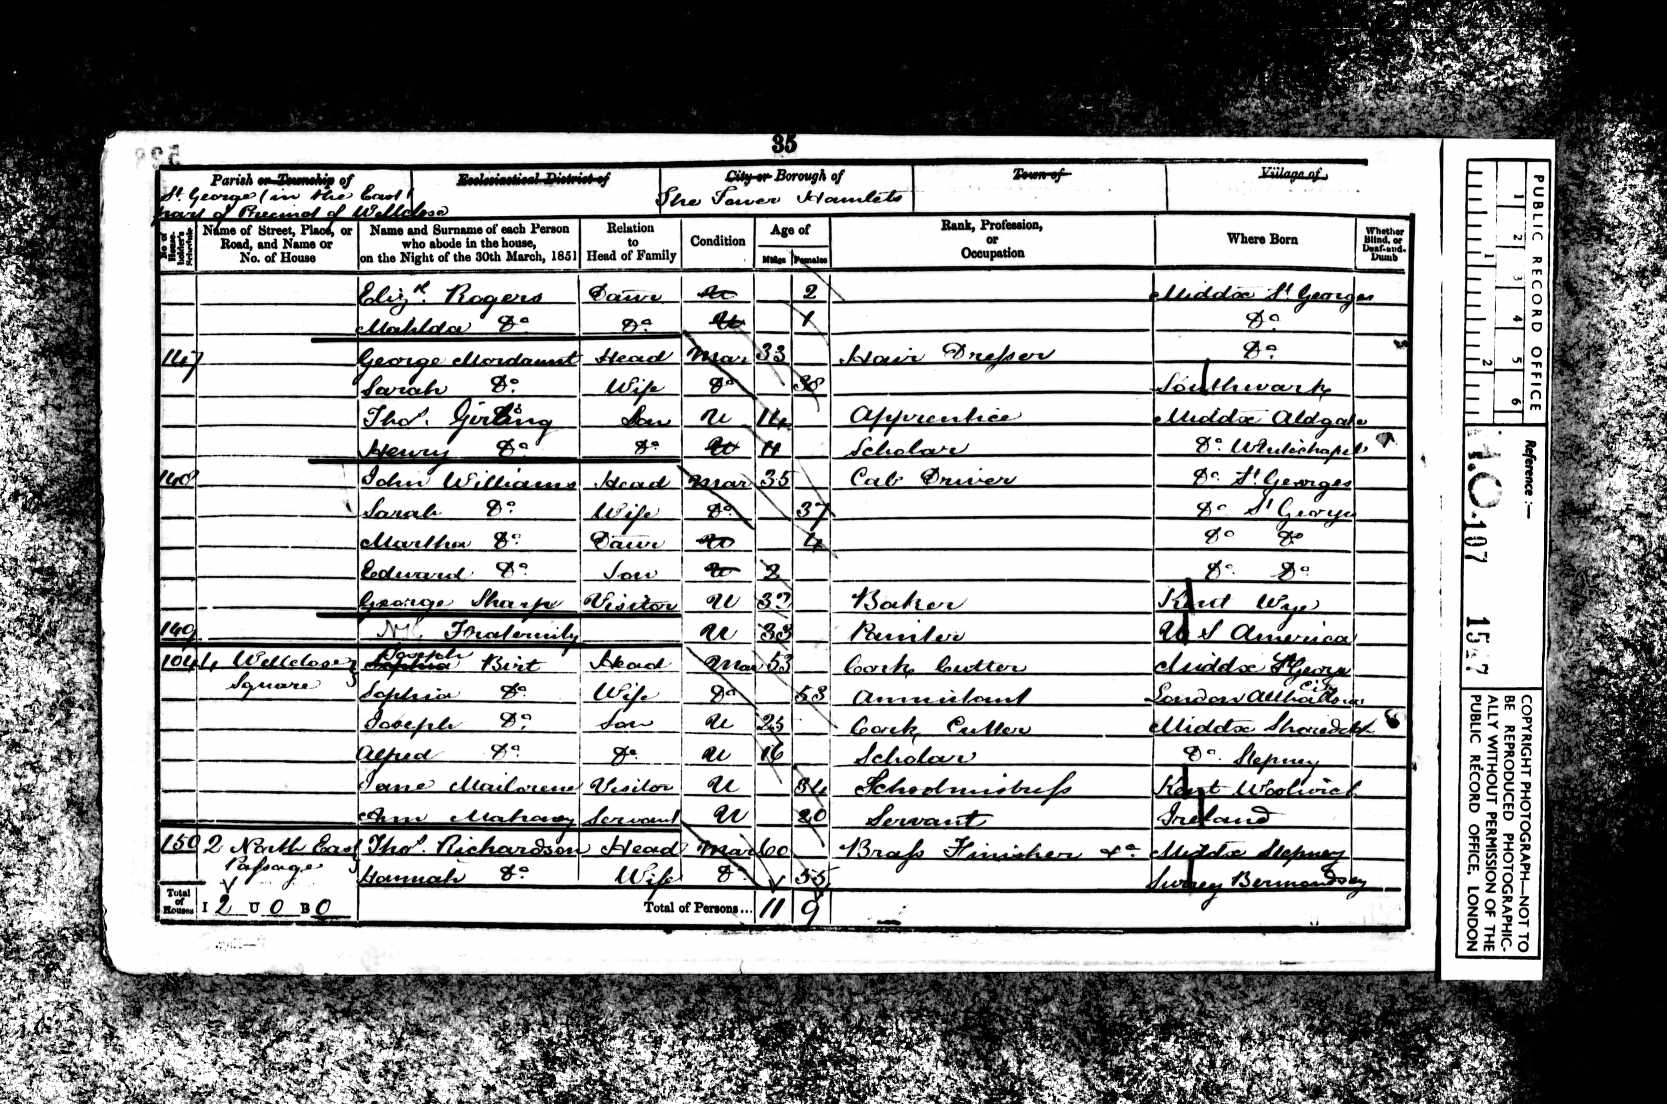 35
Parish or Township of
Ecclesiastical District of
City or Borough of
Town of
Village of
St. George (in the East)
part of Precinct of Wellclose
The Tower Hamlets
No. of House-holder's Schedule
Name of Street, Place, or Road, and Name or No. of House
Name and Surname of each Person who abode in the house, on the Night of the 30th March, 1851
Relation to Head of Family
Condition
Age of
Males
Females
Rank, Profession, or Occupation
Where Born
Whether Blind, or Deaf-and-Dumb
Elizth. Rogers Daur U 2 Middx St Georges
Matilda Do Do U 1 Do
147 George Mordaunt Head Mar 33 Hair Dresser Do
Sarah Do Wife Do 38 Southwark
Thos. Girling Son U 14 Apprentice Middx Aldgate
Henry Do Do U 11 Scholar Do Whitechapel
148 John Williams Head Mar 35 Cab Driver Do St Georges
Sarah Do Wife Do 37 Do St George
Martha Do Daur U 4 Do Do
Edward Do Son U 2 Do Do
George Sharp Visitor U Baker Kent Wye
149 Fraternity U 33 U S America
4 Wellclose Joseph Birt Head Mar 53 Cork Cutter Middx St George
Square
Sophia Do Wife Do 53 Annuitant London City
Joseph Do Son U 25 Cork Cutter Middx Shoreditch
Alfred Do Do U 16 Scholar Do Stepney
Jane Visitor U 34 Schoolmistress Kent Woolwich
Ann Mahoney Servant U 20 Servant Ireland
150 2 North East Thos. Richardson Head Mar 60 Brass Finisher &c Middx Stepney
Passage
Hannah Do Wife Do 55 Surrey Bermondsey
Total of Houses I 2 U 0 B 0 Total of Persons... 11 9
PUBLIC RECORD OFFICE
1 2 3 4 5 6
1 2
Reference:—
H.O. 107
1547
COPYRIGHT PHOTOGRAPH—NOT TO
BE REPRODUCED PHOTOGRAPHIC-
ALLY WITHOUT PERMISSION OF THE
PUBLIC RECORD OFFICE, LONDON